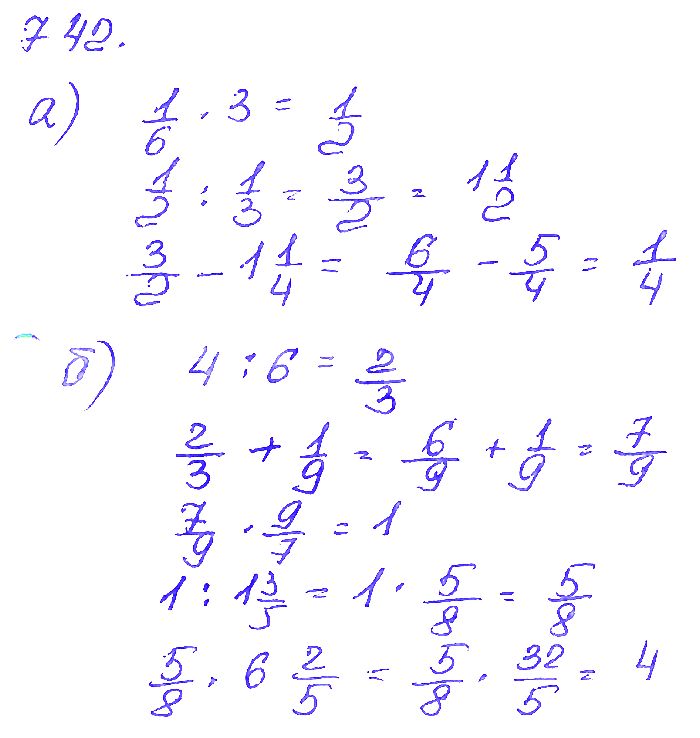 742.
а) 1/6 · 3 = 1/2
1/2 : 1/3 = 3/2 = 1 1/2
3/2 - 1 1/4 = 6/4 - 5/4 = 1/4
б) 4 : 6 = 2/3
2/3 + 1/9 = 6/9 + 1/9 = 7/9
7/9 · 9/7 = 1
1 : 1 3/5 = 1 · 5/8 = 5/8
5/8 · 6 2/5 = 5/8 · 32/5 = 4